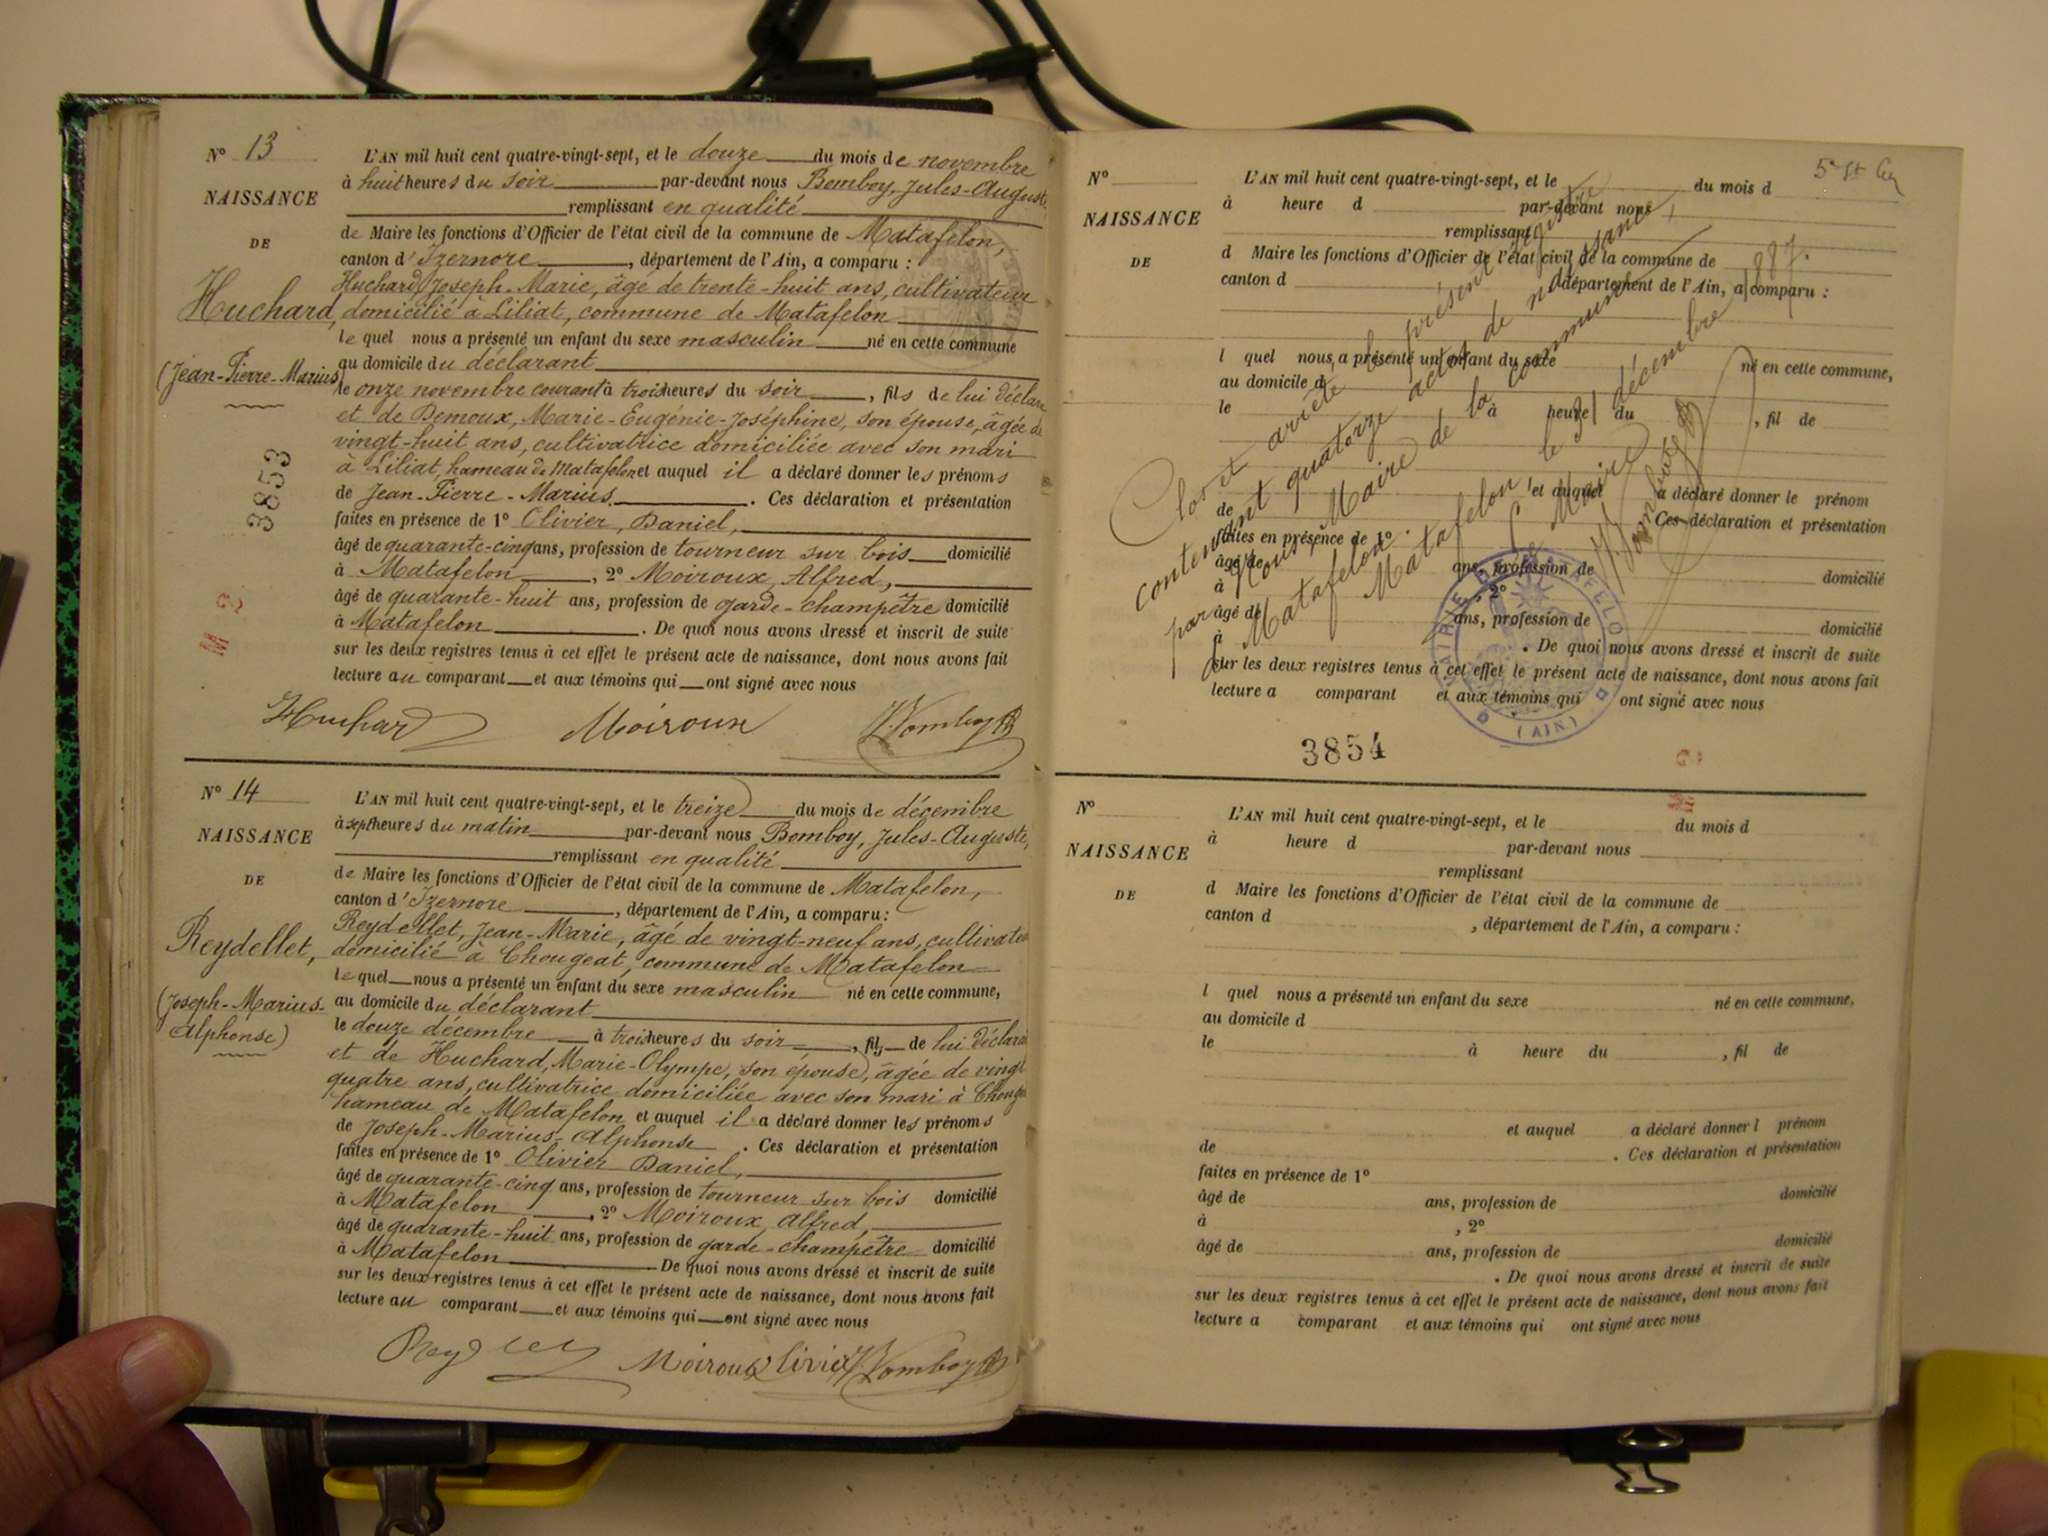 N° 13
NAISSANCE
DE
Huchard,
(Jean-Pierre-Marius)
3853
L'AN mil huit cent quatre-vingt-sept, et le douze du mois de novembre
à huit heures du soir par-devant nous Bomboy, Jules-Auguste
remplissant en qualité
de Maire les fonctions d'Officier de l'état civil de la commune de Matafelon,
canton d'Izernore, département de l'Ain, a comparu :
Huchard, Joseph-Marie, âgé de trente-huit ans, cultivateur
domicilié à Liliat, commune de Matafelon
le quel nous a présenté un enfant du sexe masculin né en cette commune
au domicile du déclarant
le onze novembre courant à trois heures du soir, fils de lui déclara
et de Demoux, Marie-Eugénie-Joséphine, son épouse, âgée de
vingt-huit ans, cultivatrice domiciliée avec son mari
à Liliat, hameau de Matafelon et auquel il a déclaré donner les prénoms
de Jean-Pierre-Marius. Ces déclaration et présentation
faites en présence de 1° Olivier, Daniel,
âgé de quarante-cinq ans, profession de tourneur sur bois domicilié
à Matafelon, 2° Moiroux, Alfred,
âgé de quarante-huit ans, profession de garde-champêtre domicilié
à Matafelon. De quoi nous avons dressé et inscrit de suite
sur les deux registres tenus à cet effet le présent acte de naissance, dont nous avons fait
lecture au comparant et aux témoins qui ont signé avec nous
Huchard Moiroux J. Bomboy
N° 14
NAISSANCE
DE
Reydellet,
(Joseph-Marius-
Alphonse)
L'AN mil huit cent quatre-vingt-sept, et le treize du mois de décembre
à sept heures du matin par-devant nous Bomboy, Jules-Auguste,
remplissant en qualité
de Maire les fonctions d'Officier de l'état civil de la commune de Matafelon,
canton d'Izernore, département de l'Ain, a comparu :
Reydellet, Jean-Marie, âgé de vingt-neuf ans, cultivate
domicilié à Chougeat, commune de Matafelon
le quel nous a présenté un enfant du sexe masculin né en cette commune,
au domicile du déclarant
le douze décembre à trois heures du soir, fils de lui déclara
et de Huchard, Marie-Olympe, son épouse, âgée de vingt
quatre ans, cultivatrice domiciliée avec son mari à Chouge
hameau de Matafelon et auquel il a déclaré donner les prénoms
de Joseph-Marius-Alphonse. Ces déclaration et présentation
faites en présence de 1° Olivier Daniel,
âgé de quarante-cinq ans, profession de tourneur sur bois domicilié
à Matafelon, 2° Moiroux, Alfred,
âgé de quarante-huit ans, profession de garde-champêtre domicilié
à Matafelon De quoi nous avons dressé et inscrit de suite
sur les deux registres tenus à cet effet le présent acte de naissance, dont nous avons fait
lecture au comparant et aux témoins qui ont signé avec nous
Moiroux Olivier J. Bomboy
N°
NAISSANCE
DE
L'AN mil huit cent quatre-vingt-sept, et le du mois d
à heure d par-devant nous
remplissant
d Maire les fonctions d'Officier de l'état civil de la commune de
canton d département de l'Ain, a comparu :
l quel nous a présenté un enfant du sexe né en cette commune,
au domicile d
le à heure du, fil de
et auquel a déclaré donner le prénom
de Ces déclaration et présentation
faites en présence de 1°
âgé de ans, profession de domicilié
à, 2°
âgé de ans, profession de domicilié
à. De quoi nous avons dressé et inscrit de suite
sur les deux registres tenus à cet effet le présent acte de naissance, dont nous avons fait
lecture a comparant et aux témoins qui ont signé avec nous
Clos et arrêté le présent registre
contenant quatorze actes de naissance,
par Nous, Maire de la commune de
Matafelon.
Matafelon le 31 décembre 1887.
Le Maire
J. Bomboy
MAIRIE DE MATAFELON
(AIN)
3854
N°
NAISSANCE
DE
L'AN mil huit cent quatre-vingt-sept, et le du mois d
à heure d par-devant nous
remplissant
d Maire les fonctions d'Officier de l'état civil de la commune de
canton d, département de l'Ain, a comparu :
l quel nous a présenté un enfant du sexe né en cette commune,
au domicile d
le à heure du, fil de
et auquel a déclaré donner l prénom
de. Ces déclaration et présentation
faites en présence de 1°
âgé de ans, profession de domicilié
à, 2°
âgé de ans, profession de domicilié
. De quoi nous avons dressé et inscrit de suite
sur les deux registres tenus à cet effet le présent acte de naissance, dont nous avons fait
lecture a comparant et aux témoins qui ont signé avec nous